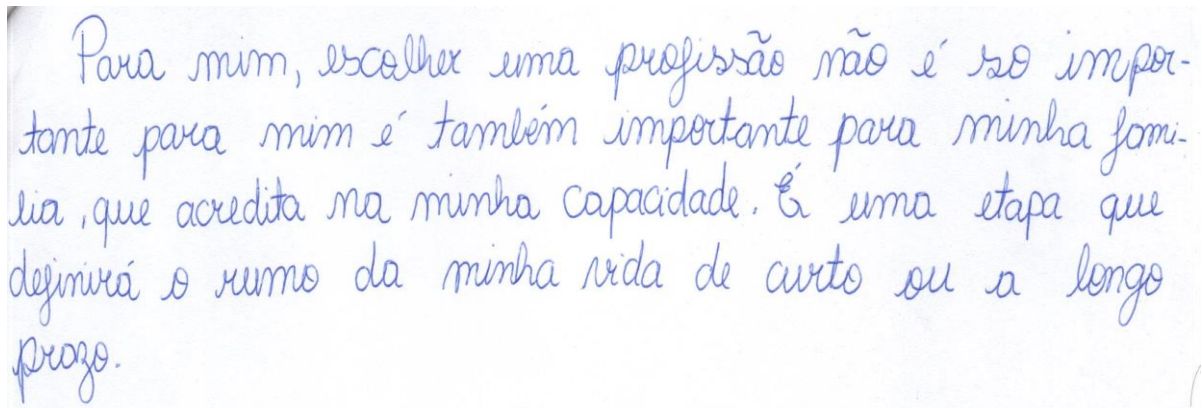 Para mim, escolher uma profissão não é so impor-
tante para mim é também importante para minha fami-
lia, que acredita na minha capacidade. É uma etapa que
definirá o rumo da minha vida de curto ou a longo
prazo.